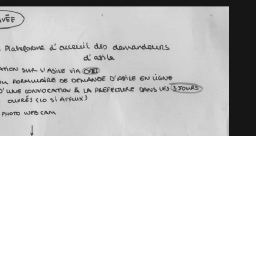 VÉE
Plateforme d'accueil des demandeurs
d'asile
ATION SUR L'ASILE VIA
FORMULAIRE DE DEMANDE D'ASILE EN LIGNE
D'UNE CONVOCATION À LA PRÉFECTURE DANS LES 3 JOURS
OUVRÉS (10 SI AFFLUX)
PHOTO WEB CAM